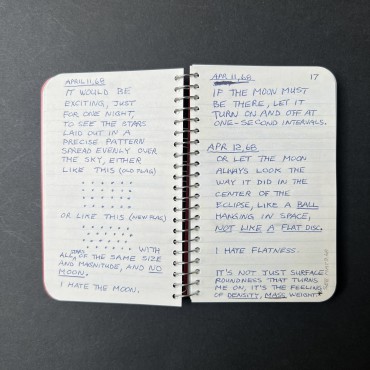 APRIL 11, 68
IT WOULD BE
EXCITING, JUST
FOR ONE NIGHT,
TO SEE THE STARS
LAID OUT IN A
PRECISE PATTERN
SPREAD EVENLY OVER
THE SKY, EITHER
LIKE THIS (OLD FLAG)
OR LIKE THIS (NEW FLAG)
WITH
ALL STARS OF THE SAME SIZE
AND MAGNITUDE, AND NO
MOON.
I HATE THE MOON.
APR 11, 68
17
IF THE MOON MUST
BE THERE, LET IT
TURN ON AND OFF AT
ONE-SECOND INTERVALS.
APR 12, 68
OR LET THE MOON
ALWAYS LOOK THE
WAY IT DID IN THE
CENTER OF THE
ECLIPSE, LIKE A BALL
HANGING IN SPACE,
NOT LIKE A FLAT DISC.
I HATE FLATNESS.
IT'S NOT JUST SURFACE
ROUNDNESS THAT TURNS
ME ON, IT'S THE FEELING
OF DENSITY, MASS, WEIGHT.